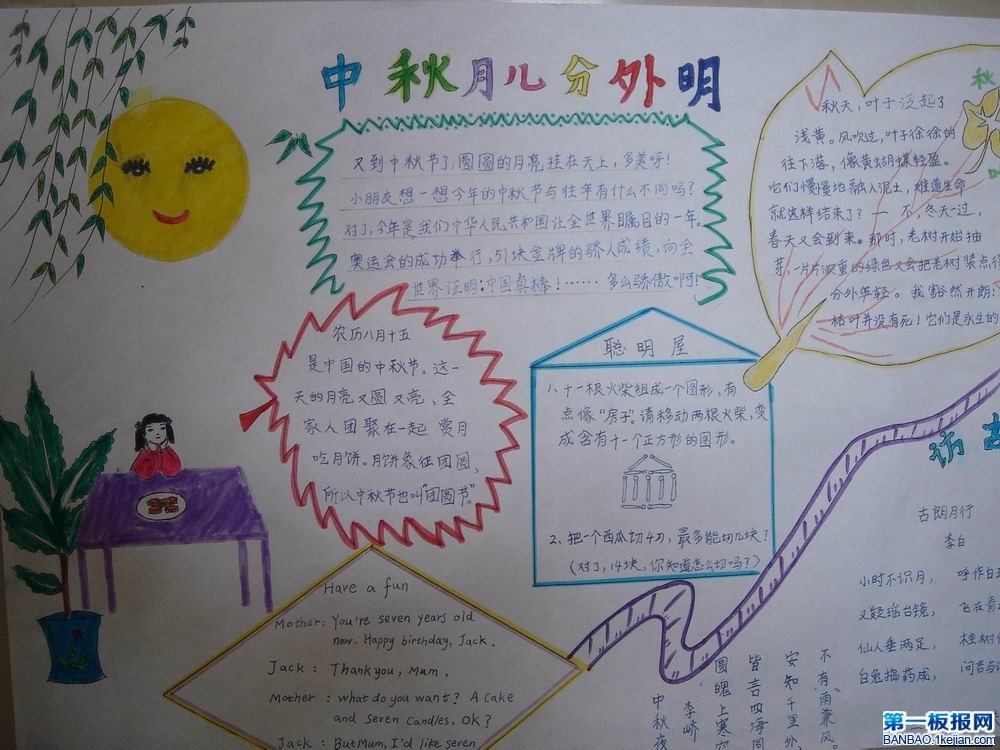 中秋月儿分外明
又到中秋节了,圆圆的月亮挂在天上,多美呀!
小朋友想一想今年的中秋节与往年有什么不同吗?
对了,今年是我们中华人民共和国让全世界瞩目的一年。
奥运会的成功举行,51块金牌的骄人成绩,向全
世界证明:中国真棒!……多么骄傲啊!
秋
秋天,叶子泛起了
浅黄。风吹过,叶子徐徐的
往下落,像黄蝴蝶轻盈。
它们慢慢地融入泥土,难道生命
就这样结束了?一不,冬天一过,
春天又会到来。那时,老树开始抽
芽,一片片浓重的绿色又会把老树装点得
分外年轻。我豁然开朗:
枯叶并没有死!它们是永生的
农历八月十五
是中国的中秋节。这一
天的月亮又圆又亮、全
家人团聚在一起赏月
吃月饼。月饼象征团圆、
所以中秋节也叫"团圆节"。
聪明屋
1、十一根火柴组成一个图形,有
点像"房子"。请移动两根火柴,变
成含有十一个正方形的图形。
2、把一个西瓜切4刀,最多能切几块?
(对了,14块,你知道怎么切吗?)
Have a fun
Mother: You're seven years old
now. Happy birthday, Jack.
Jack: Thank you, Mum.
Mother: what do you want? A cake
and seven candles, OK?
Jack: But Mum, I'd like seven
访古
古朗月行
李白
小时不识月, 呼作白玉
又疑瑶台镜, 飞在青
仙人垂两足, 桂树
白兔捣药成, 问言与
中秋夜
李峤
圆魄上寒空
皆言四海同
安知千里外
不有雨兼风
第一板报网
BANBAO.1kejian.com